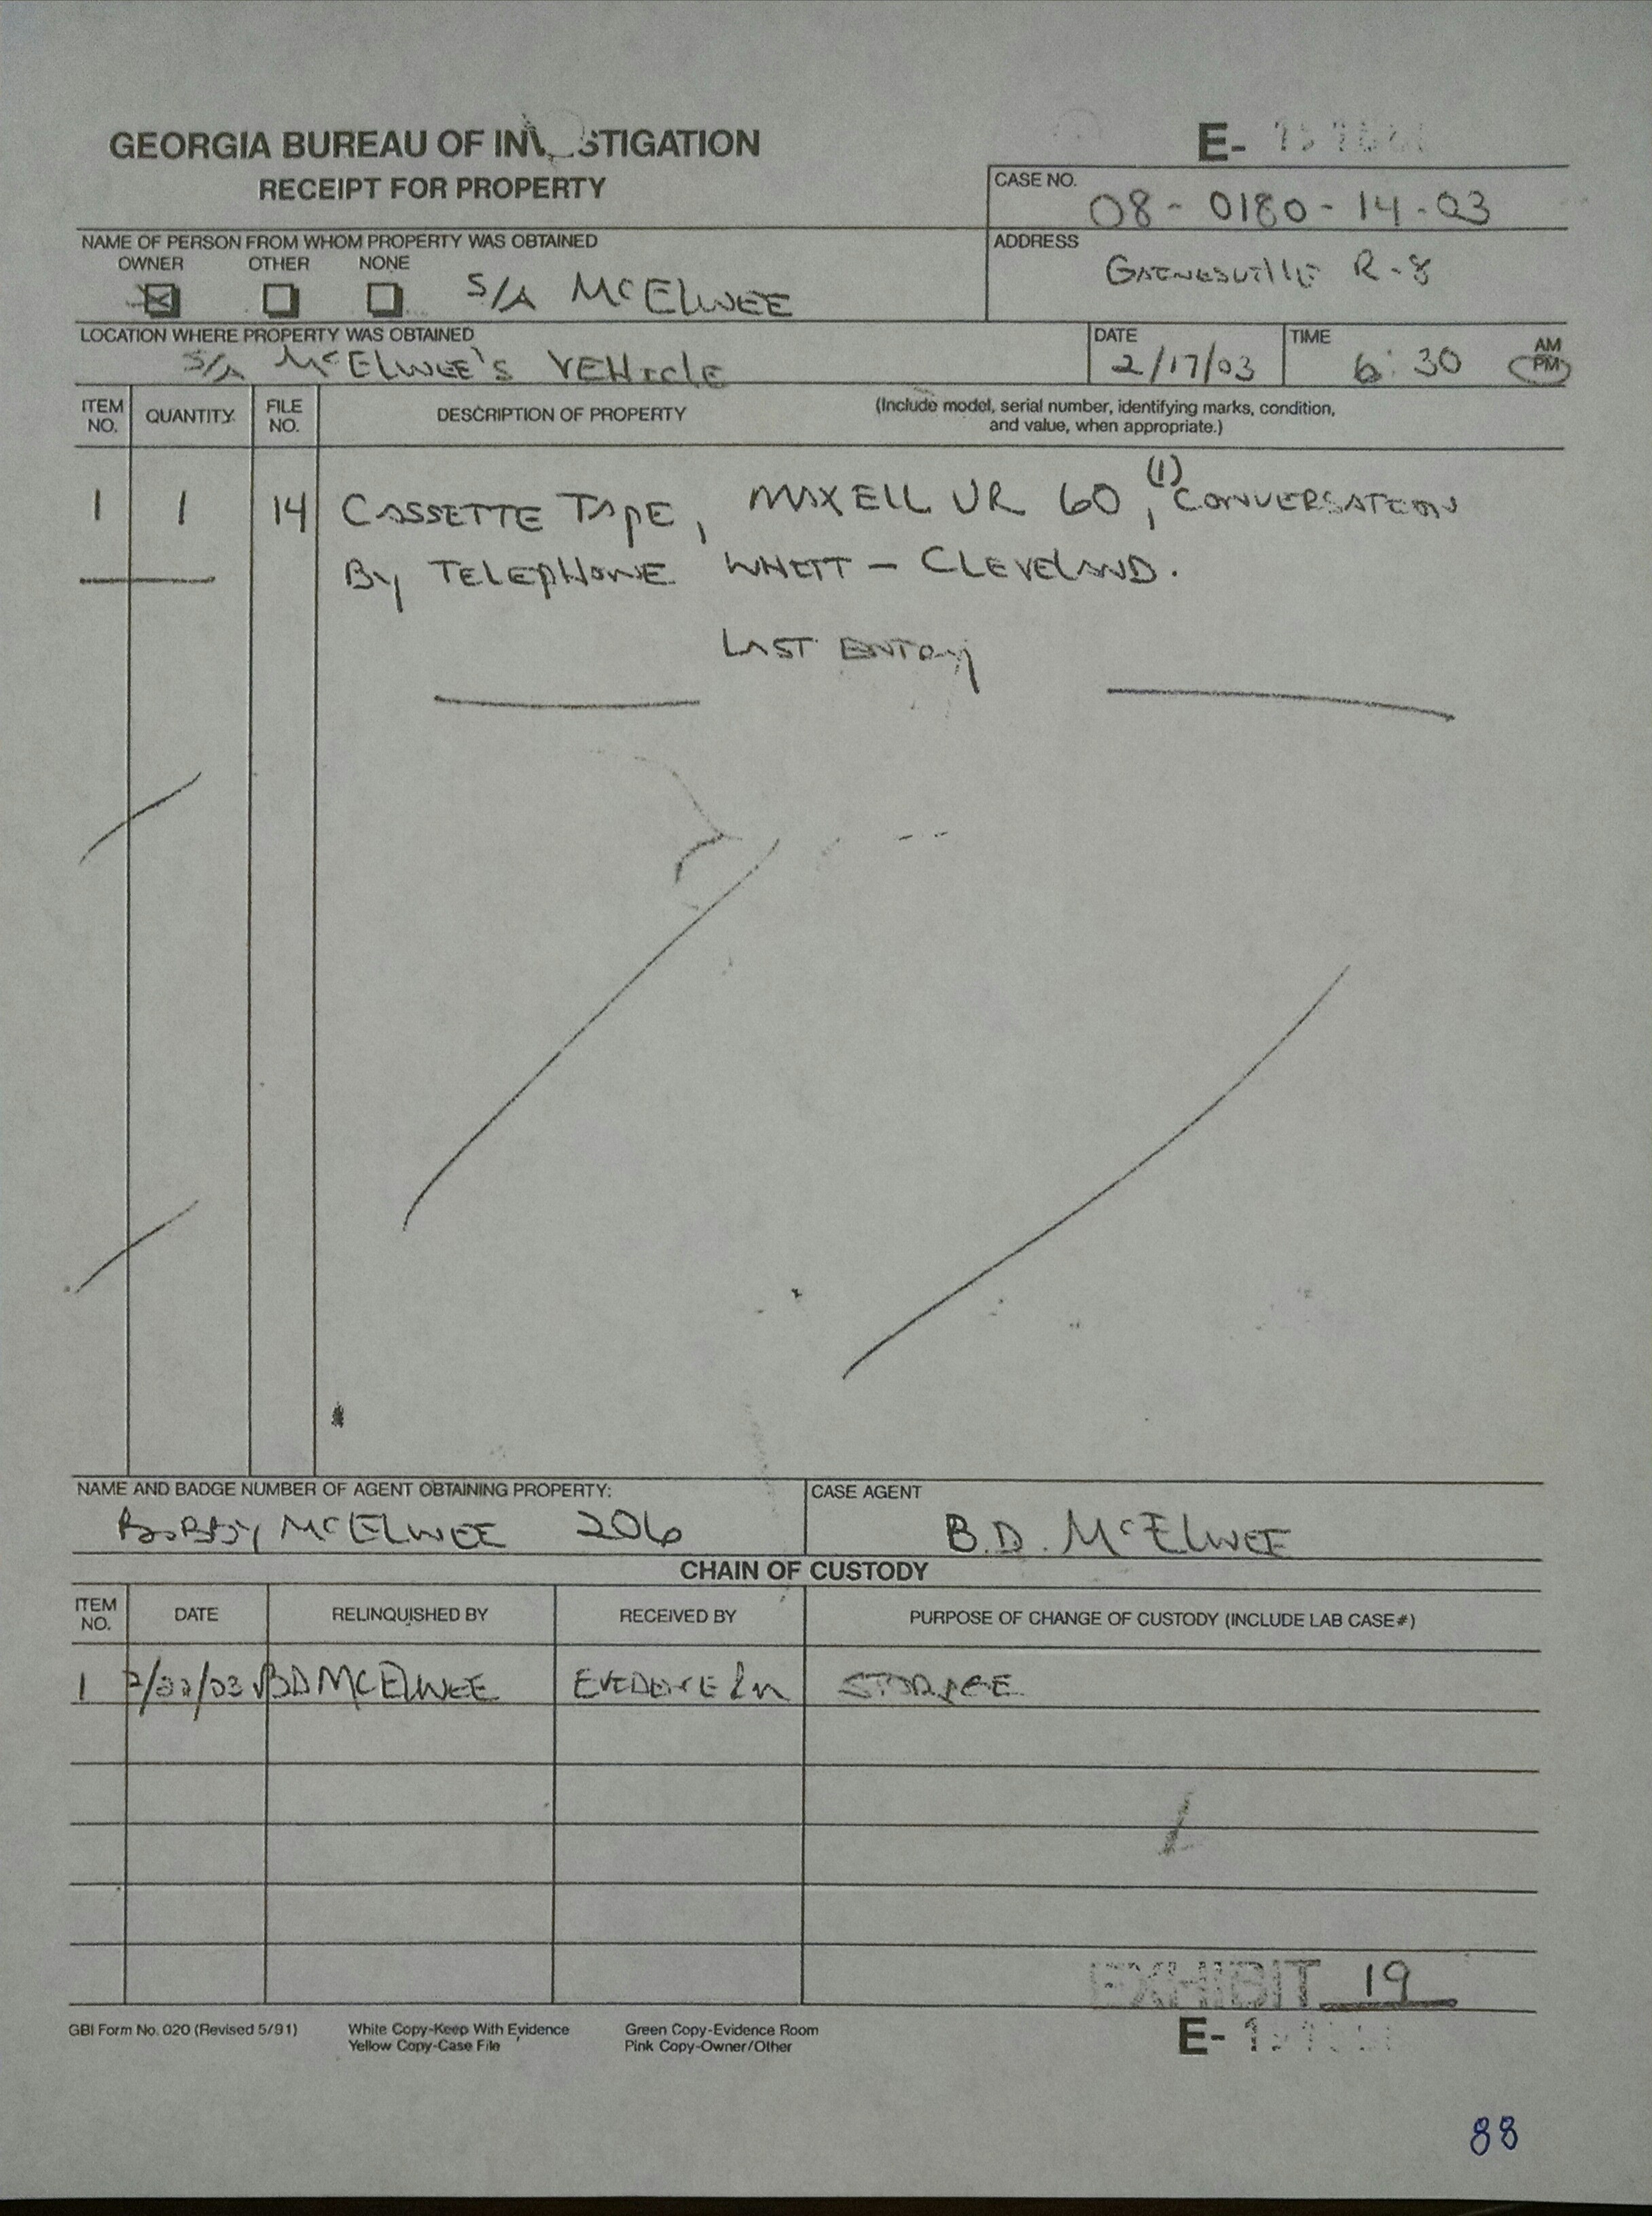 GEORGIA BUREAU OF INVESTIGATION
RECEIPT FOR PROPERTY
E-
CASE NO.
08-0180-14-03
NAME OF PERSON FROM WHOM PROPERTY WAS OBTAINED
OWNER OTHER NONE
S/A McELWEE
ADDRESS
GAINESVILLE R-8
LOCATION WHERE PROPERTY WAS OBTAINED
S/A McELWEE'S VEHICLE
DATE
2/17/03
TIME
6:30
AM
PM
ITEM NO. QUANTITY FILE NO. DESCRIPTION OF PROPERTY (Include model, serial number, identifying marks, condition,
and value, when appropriate.)
1 1 14 CASSETTE TAPE, MAXELL UR 60, (1) CONVERSATION
BY TELEPHONE WHITT - CLEVELAND.
LAST ENTRY
NAME AND BADGE NUMBER OF AGENT OBTAINING PROPERTY:
BOBBY McELWEE 206
CASE AGENT
B.D. McELWEE
CHAIN OF CUSTODY
ITEM NO. DATE RELINQUISHED BY RECEIVED BY PURPOSE OF CHANGE OF CUSTODY (INCLUDE LAB CASE#)
1 BD McELWEE EVIDENCE Rm STORAGE
EXHIBIT 19
GBI Form No. 020 (Revised 5/91) White Copy-Keep With Evidence Green Copy-Evidence Room
Yellow Copy-Case File Pink Copy-Owner/Other
E-
88